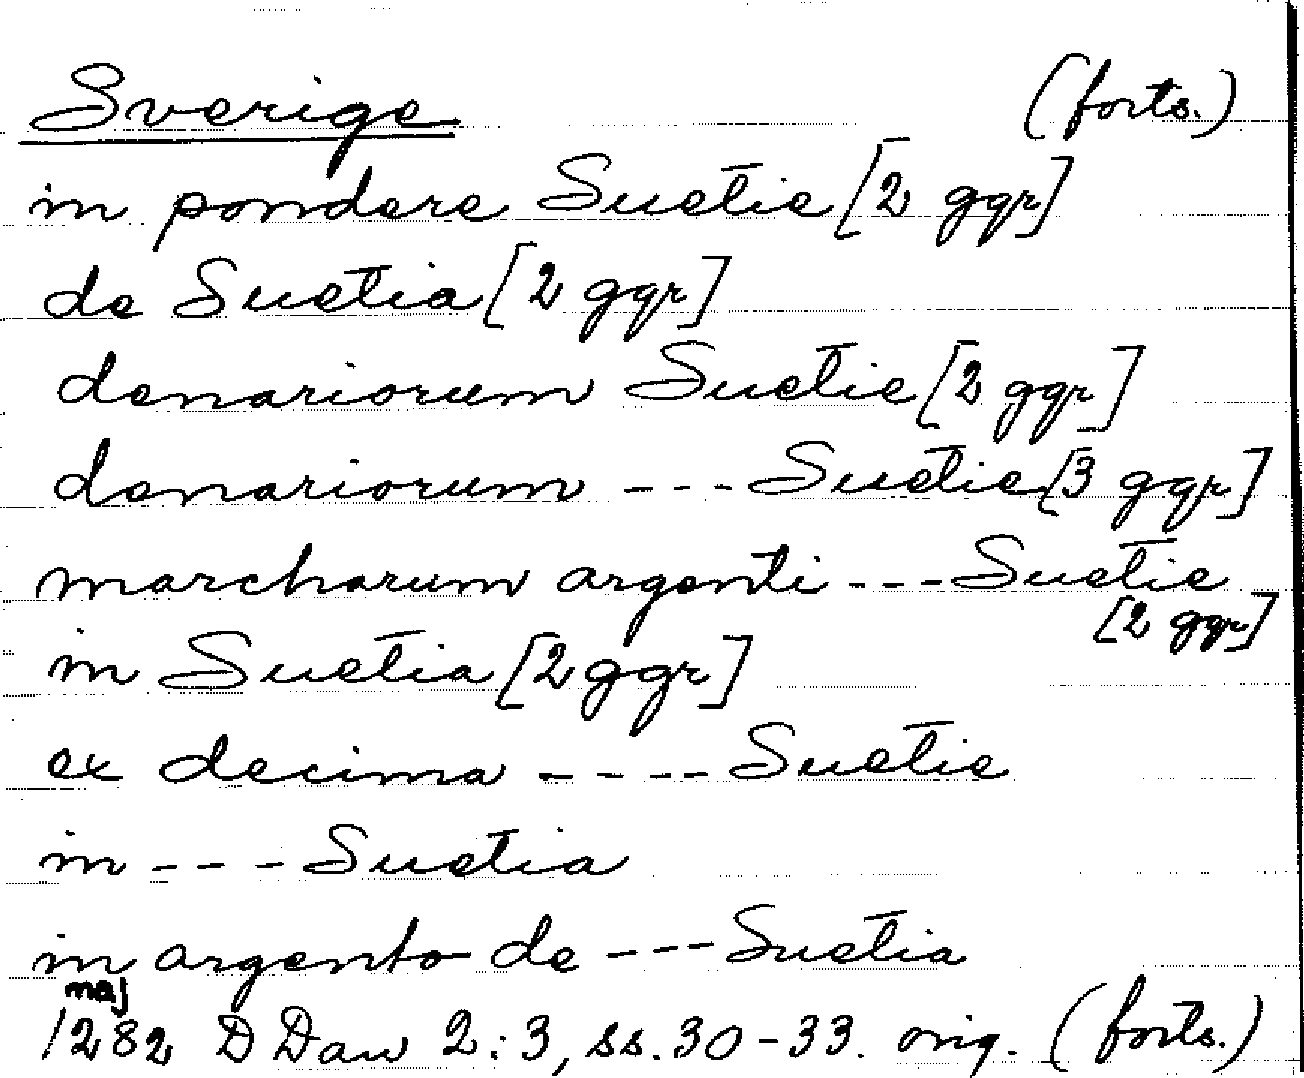 Sverige (forts.)
in pondere Suetie [2 ggr]
de Suetia [2 ggr]
denariorum Suetie [2 ggr]
denariorum --- Suetie [3 ggr]
marcharum argenti --- Suetie
[2 ggr]
in Suetia [2 ggr]
ex decima ---- Suetie
in --- Suetia
in argento de --- Suetia
maj
1282 D Dan 2:3, ss. 30-33. orig. (forts.)